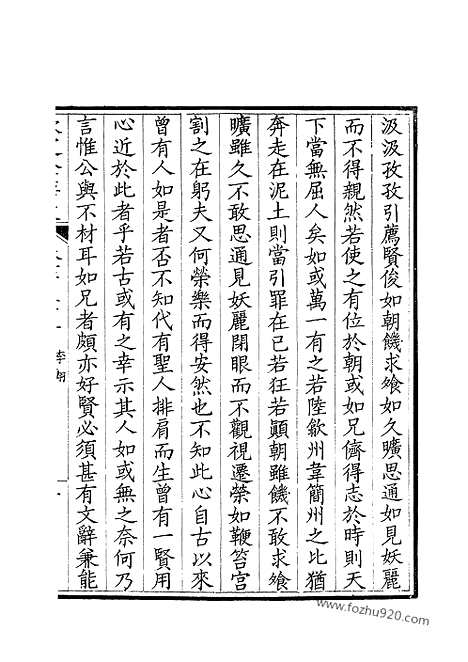 汲汲孜孜引薦賢俊如朝饑求飧如久曠思通如見妖麗
而不得親然若使之有位於朝或如兄儕得志於時則天
下當無屈人矣如或萬一有之若陸歙州韋簡州之比猶
奔走在泥土則當引罪在已若狂若顛朝雖饑不敢求飧
曠雖久不敢思通見妖麗閉眼而不觀視遷榮如鞭笞宫
割之在躬夫又何榮樂而得安然也不知此心自古以來
曾有人如是者否不知代有聖人排肩而生曾有一賢用
心近於此者乎若古或有之幸示其人如或無之奈何乃
言惟公與不材耳如兄者頗亦好賢必須甚有文辭兼能
李翱
www.fozhu920.com